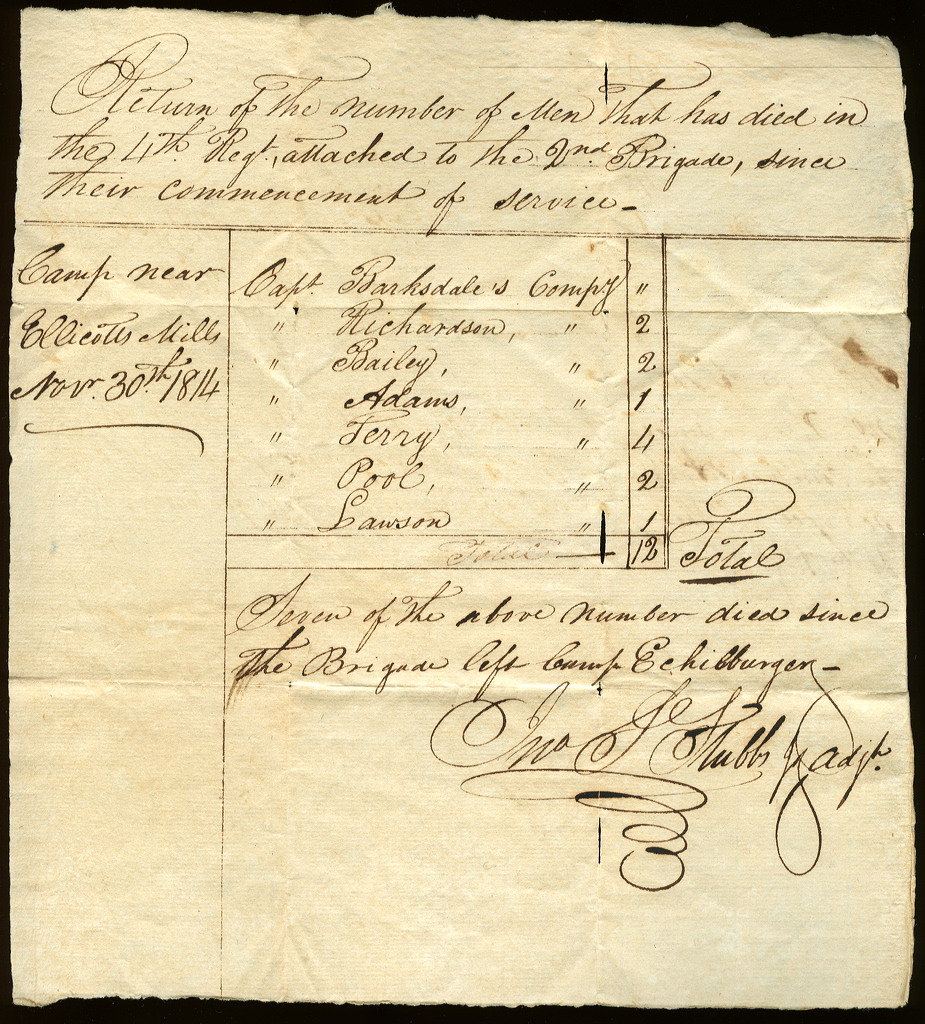 Return of the number of Men that has died in
the 4th. Regt., attached to the 2nd Brigade, since
their commencement of service -
Camp near
Ellicotts Mills
Novr. 30th. 1814
Capt. Barksdale's Compy "
" Richardson, " 2
" Bailey, " 2
" Adams, " 1
" Terry, " 4
" Pool, " 2
" Lawson " 1
Total — 12 Total
Seven of the above number died since
the Brigade left Camp Echilburger -
Jno S Stubbs adjt.